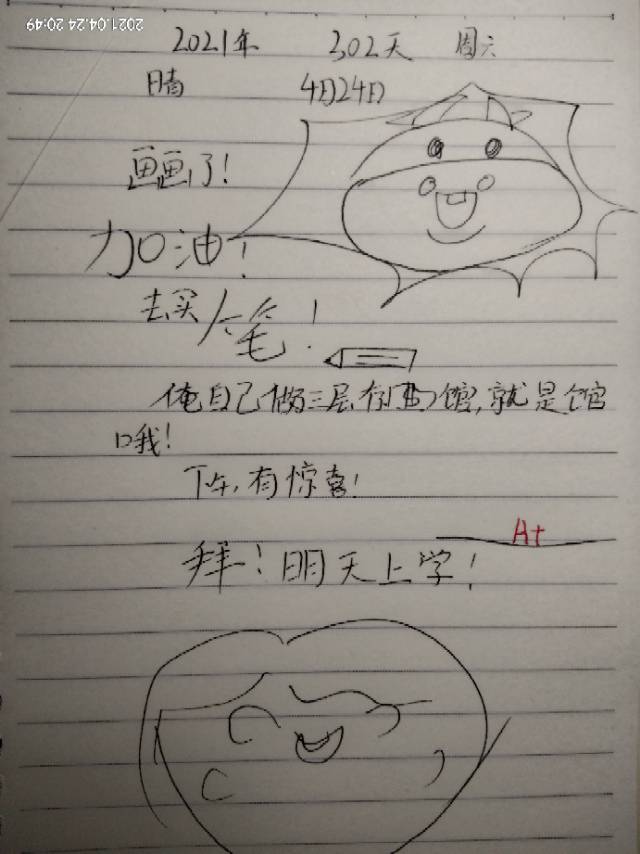 2021.04.24 20:49
2021年 302天 周六
晴 4月24日
画画了!
加油!
去买个笔!
俺自己做三层有 馆,就是馆
哦!
下午,有惊喜!
A+
拜!明天上学!